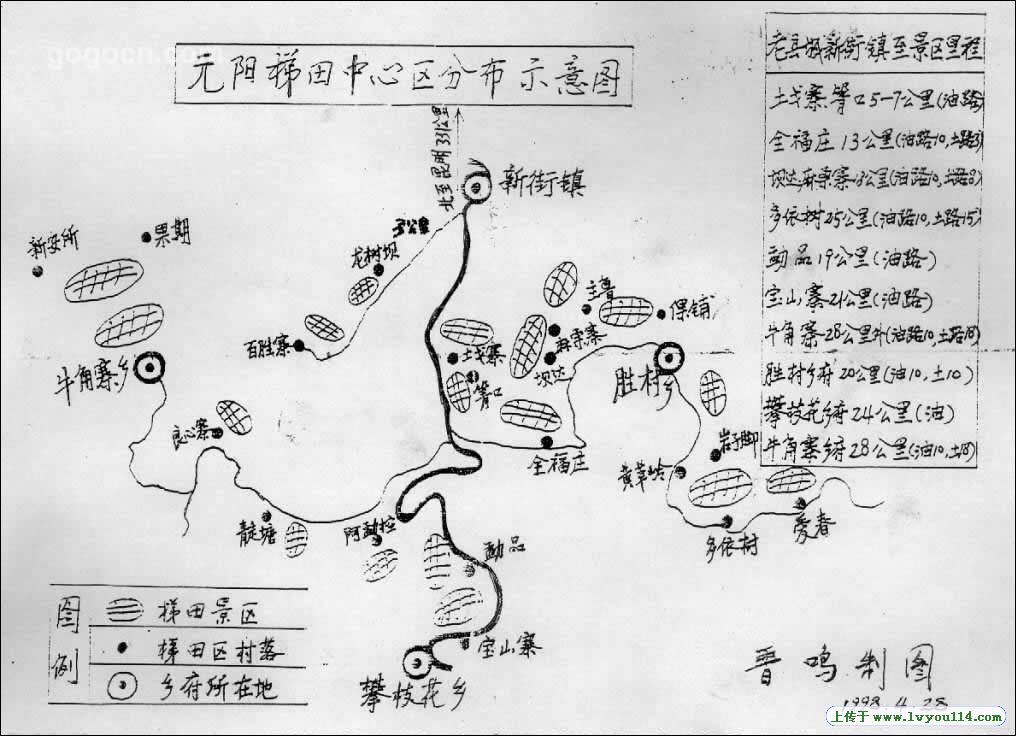 gogocn.com
元阳梯田中心区分布示意图
老县城新街镇至景区里程
土戈寨箐口5-7公里(油路)
全福庄13公里(油路10,土路3)
坝达麻栗寨18公里(油路10,土路8)
多依树25公里(油路10,土路15)
勐品19公里(油路)
宝山寨21公里(油路)
牛角寨28公里外(油路10,土路18)
胜村乡府20公里(油10,土10)
攀枝花乡府24公里(油)
牛角寨乡府28公里(油10,土18)
北至昆明331公里
新街镇
新安所
果期
龙树坝
百胜寨
主鲁
保铺
麻栗寨
坝达
土戈寨
箐口
牛角寨乡
胜村乡
良心寨
全福庄
岩子脚
黄草岭
靛塘
阿勐控
勐品
多依树
爱春
宝山寨
攀枝花乡
图例
梯田景区
梯田区村落
乡府所在地
晋鸣制图
1998.4.28
上传于 www.lvyou114.com